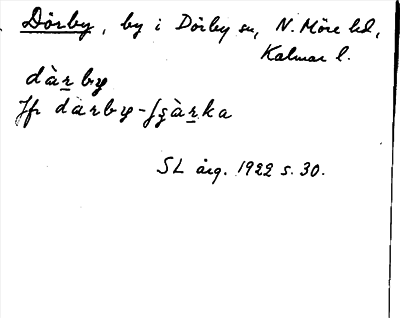 Dörby, by i Dörby sn, N. Möre hd,
Kalmar l.
dàrby
Jfr dàrby-ʃçàrka
SL årg. 1922 s. 30.